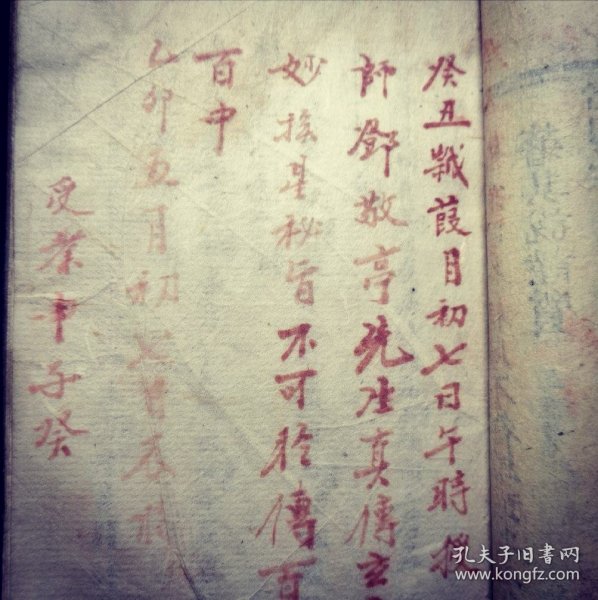 癸丑歲葭月初七日午時
師鄧敬亭先生真傳玄
妙 星秘旨不可 傳百
百中
乙卯五月初 日辰時
受業申子癸
孔夫子旧书网
www.kongfz.com